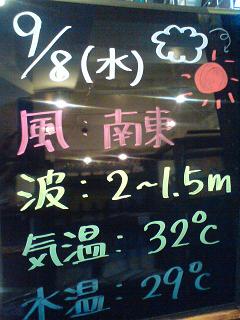 9/8(水)
風:南東
波:2~1.5m
気温:32℃
水温:29℃